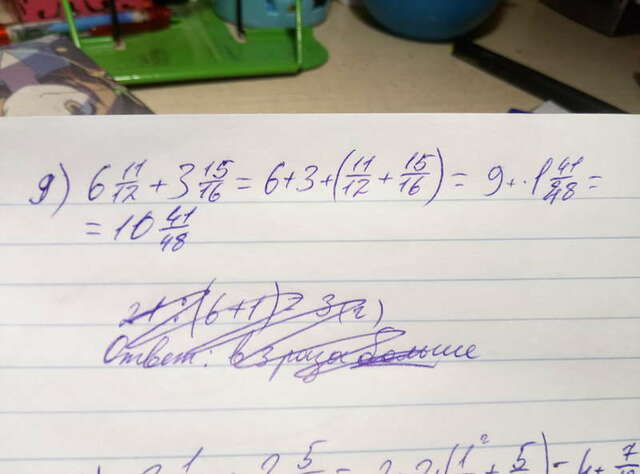 д) 6 11/12 + 3 15/16 = 6+3+(11/12 + 15/16) = 9 + 1 41/48 =
= 10 41/48
21 : (6+1) = 3 (г)
Ответ: в 3 раза больше
2 1 2 5 = 2 2 (1 + 5) = 4 + 7